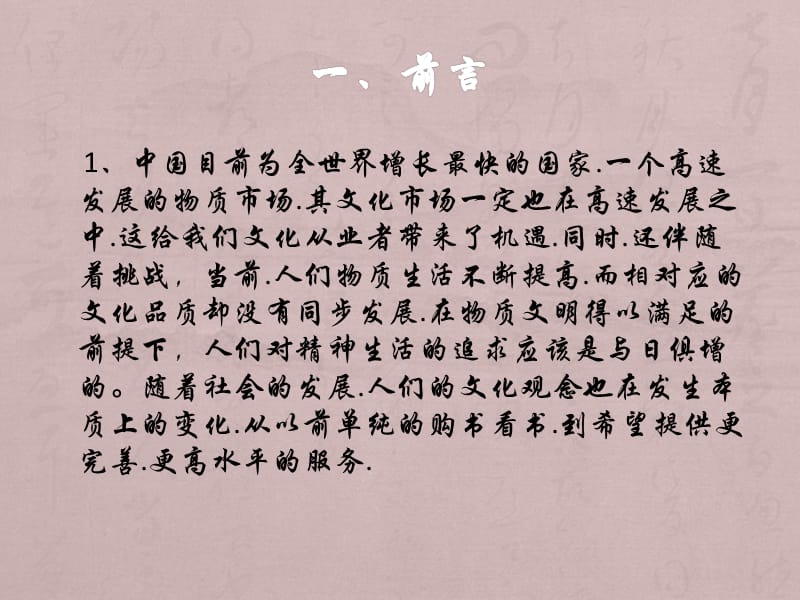 一、前言
1、中国目前为全世界增长最快的国家.一个高速
发展的物质市场.其文化市场一定也在高速发展之
中.这给我们文化从业者带来了机遇.同时.还伴随
着挑战，当前.人们物质生活不断提高.而相对应的
文化品质却没有同步发展.在物质文明得以满足的
前提下，人们对精神生活的追求应该是与日俱增
的。随着社会的发展.人们的文化观念也在发生本
质上的变化.从以前单纯的购书看书.到希望提供更
完善.更高水平的服务.